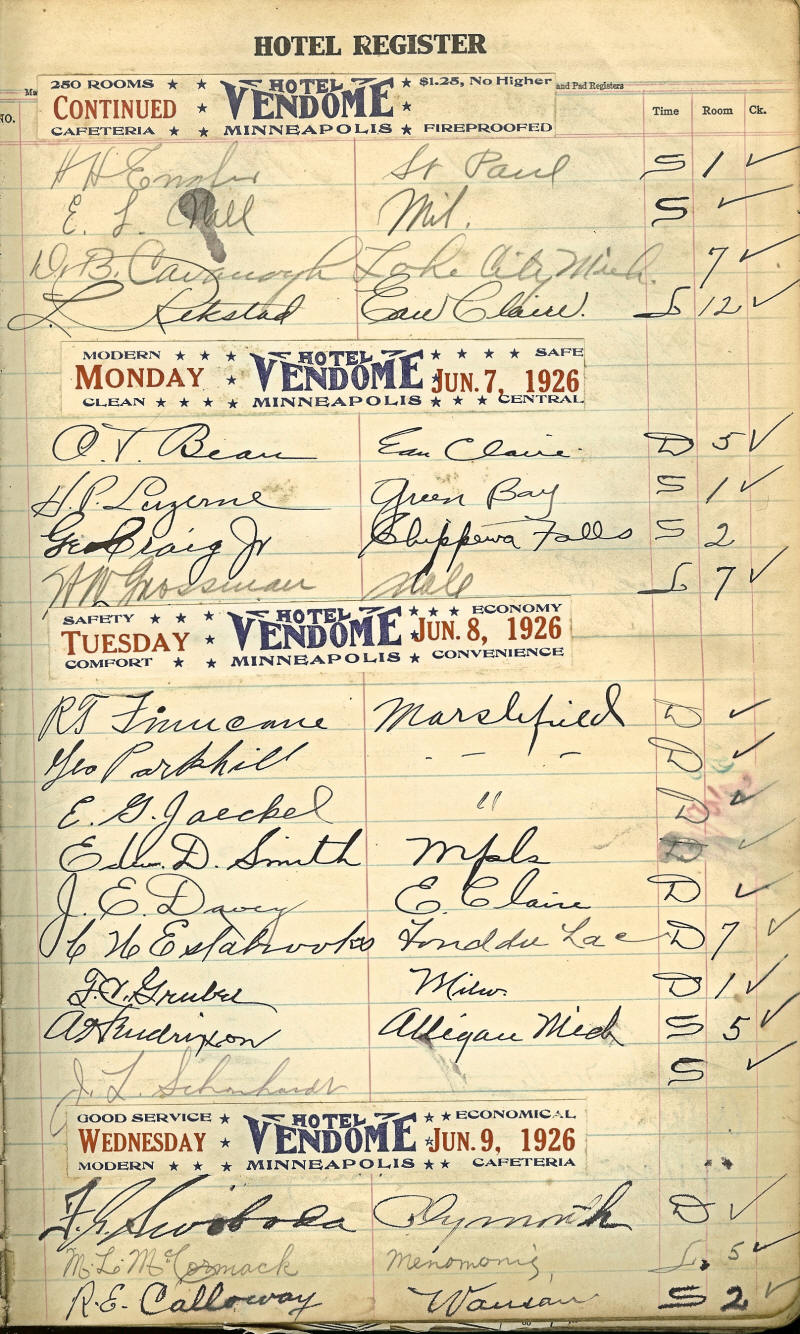 HOTEL REGISTER
and Pad Registers
NO. Time Room Ck.
250 ROOMS ★ ★ ★ HOTEL ★ $1.25, No Higher
CONTINUED ★ VENDOME ★
CAFETERIA ★ ★ MINNEAPOLIS ★ FIREPROOFED
H H St Paul S 1 ✓
E. L. Nall Mil. S ✓
Dr B. Cavanogh Lake City Mich. 7 ✓
L. Rekstad Eau Claire. L 12 ✓
MODERN ★ ★ ★ ★ HOTEL ★ ★ ★ ★ SAFE
MONDAY ★ VENDOME ★ JUN. 7, 1926
CLEAN ★ ★ ★ ★ MINNEAPOLIS ★ ★ ★ CENTRAL
O. T. Bean Eau Claire. D 5 ✓
H. P. Luzerne Green Bay S 1 ✓
Geo Craig Jr Chippewa Falls S 2
H W Grossman L 7 ✓
SAFETY ★ ★ ★ HOTEL ★ ★ ★ ECONOMY
TUESDAY ★ VENDOME ★ JUN. 8, 1926
COMFORT ★ ★ MINNEAPOLIS ★ CONVENIENCE
R T Finucane Marshfield D ✓
Geo Parkhill - - - D ✓
E. G. Jaeckel " D ✓
Edw. D. Smith Mpls D ✓
J. E. Davey E. Claire D ✓
C H Estabrooks Fond du Lac D 7 ✓
F. V. Gruber Milw. D 1 ✓
Alligan Mich S 5 ✓
J. L. Schonhardt S ✓
GOOD SERVICE ★ HOTEL ★ ★ ECONOMICAL
WEDNESDAY ★ VENDOME ★ JUN. 9, 1926
MODERN ★ ★ ★ MINNEAPOLIS ★ ★ CAFETERIA
F. G. Swoboda Plymouth D ✓
M. L. McCormack Menomonie, L. 5 ✓
R. E. Calloway Wausau S 2 ✓